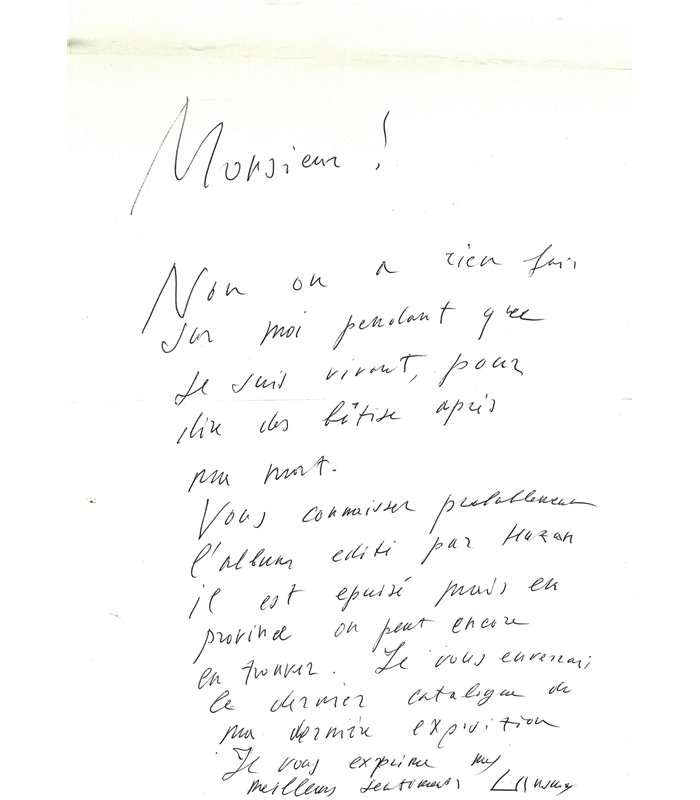 Monsieur !
Non on a rien fair
sur moi pendant que
Je suis vivant, pour
dire des bêtise après
ma mort.
Vous connaisser probablement
l'album edité par Hazan
il est epuisé mais en
provinde on peut encore
en trouver. Je vous enverrai
le dernier catalogue de
ma dernière exposition
Je vous exprime mes
meilleurs sentiments Lansky